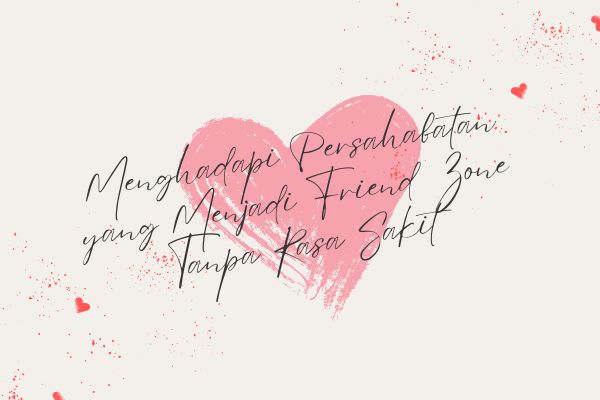 Menghadapi Persahabatan
yang Menjadi Friend Zone
Tanpa Rasa Sakit